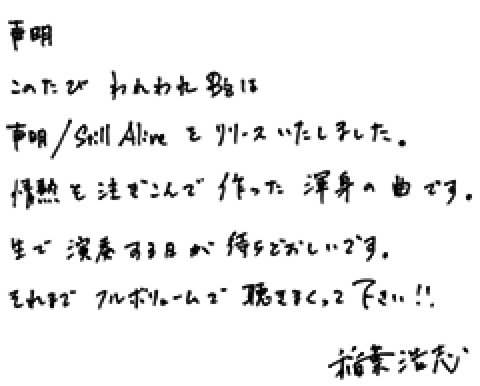 声明
このたび われわれ B'zは
声明/Still Alive を リリースいたしました。
情熱を 注ぎこんで 作った 渾身の 曲です。
生で 演奏する日が 待ちどおしいです。
それまで フルボリュームで 聴きまくって 下さい!!
稲葉浩志